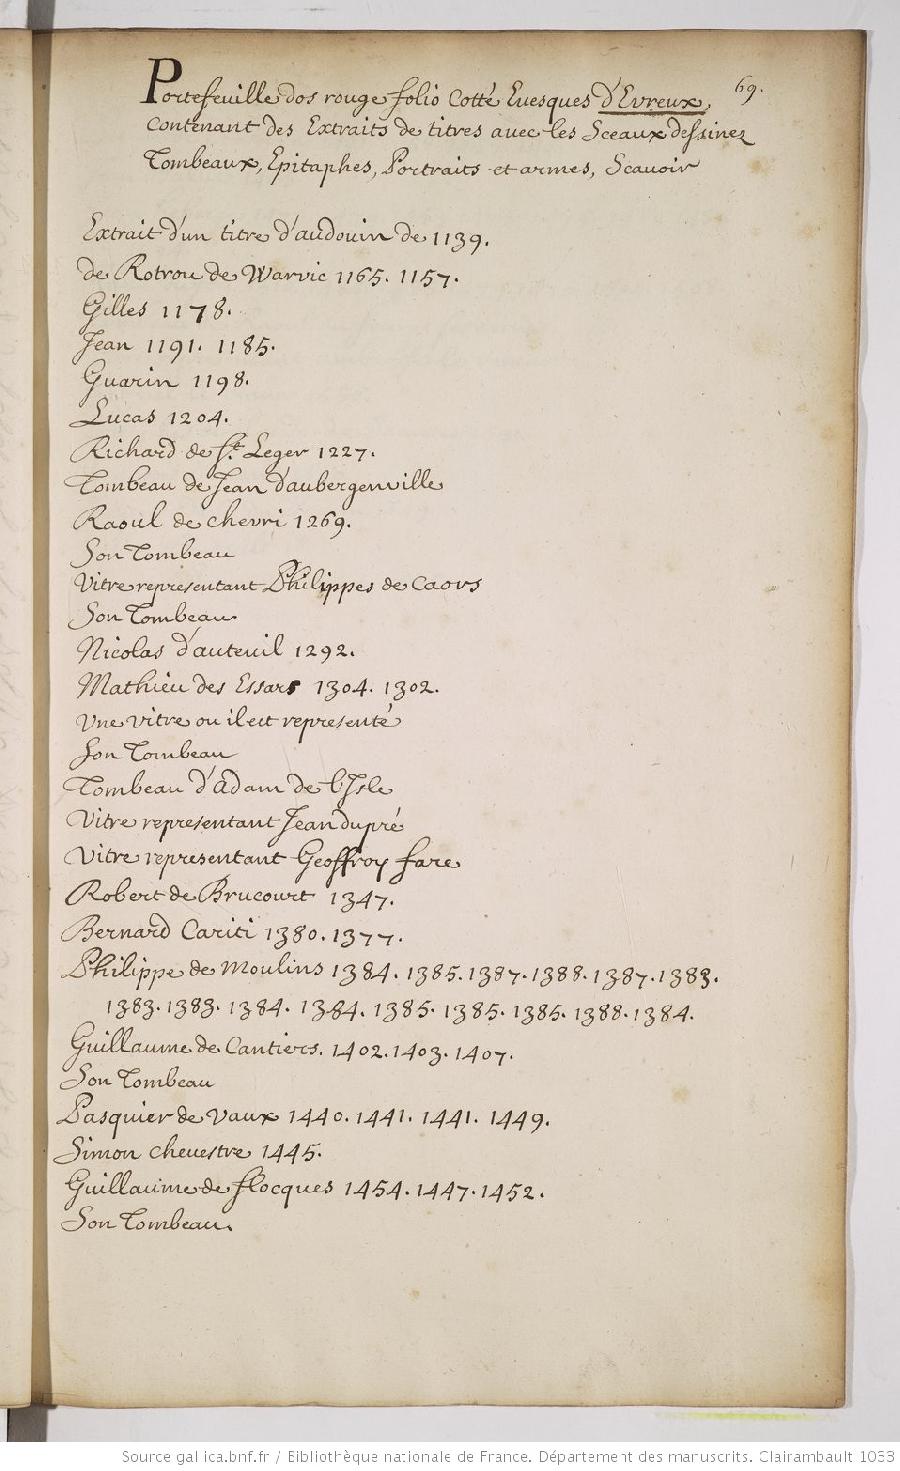 69.
Portefeuille dos rouge folio Cotté Euesques d'Evreux,
Contenant des Extraits de titres auec les Sceaux dessinez
Tombeaux, Epitaphes, Portraits et armes, Scauoir
Extrait d'un titre d'audouin de 1139.
de Rotrou de Warvic 1165. 1157.
Gilles 1178.
Jean 1191. 1185.
Guarin 1198.
Lucas 1204.
Richard de St. Leger 1227.
Tombeau de Jean d'aubergenuille
Raoul de chevri 1269.
Son Tombeau
Vitre representant Philippes de Caors
Son Tombeau.
Nicolas d'auteuil 1292.
Mathieu des Essars 1304. 1302.
Une vitre ou il est representé
Son Tombeau
Tombeau d'Adam de l'Isle
Vitre representant Jean dupré
Vitre representant Geoffroy fare
Robert de Brucourt 1347.
Bernard Cariti 1380. 1377.
Philippe de Moulins 1384. 1385. 1387. 1388. 1387. 1383.
1383. 1383. 1384. 1384. 1385. 1385. 1385. 1388. 1384.
Guillaume de Cantiers. 1402. 1403. 1407.
Son Tombeau
Pasquier de Vaux 1440. 1441. 1441. 1449.
Simon cheuestre 1445.
Guillaume de flocques 1454. 1447. 1452.
Son Tombeau.
Source gallica.bnf.fr / Bibliothèque nationale de France. Département des manuscrits. Clairambault 1033